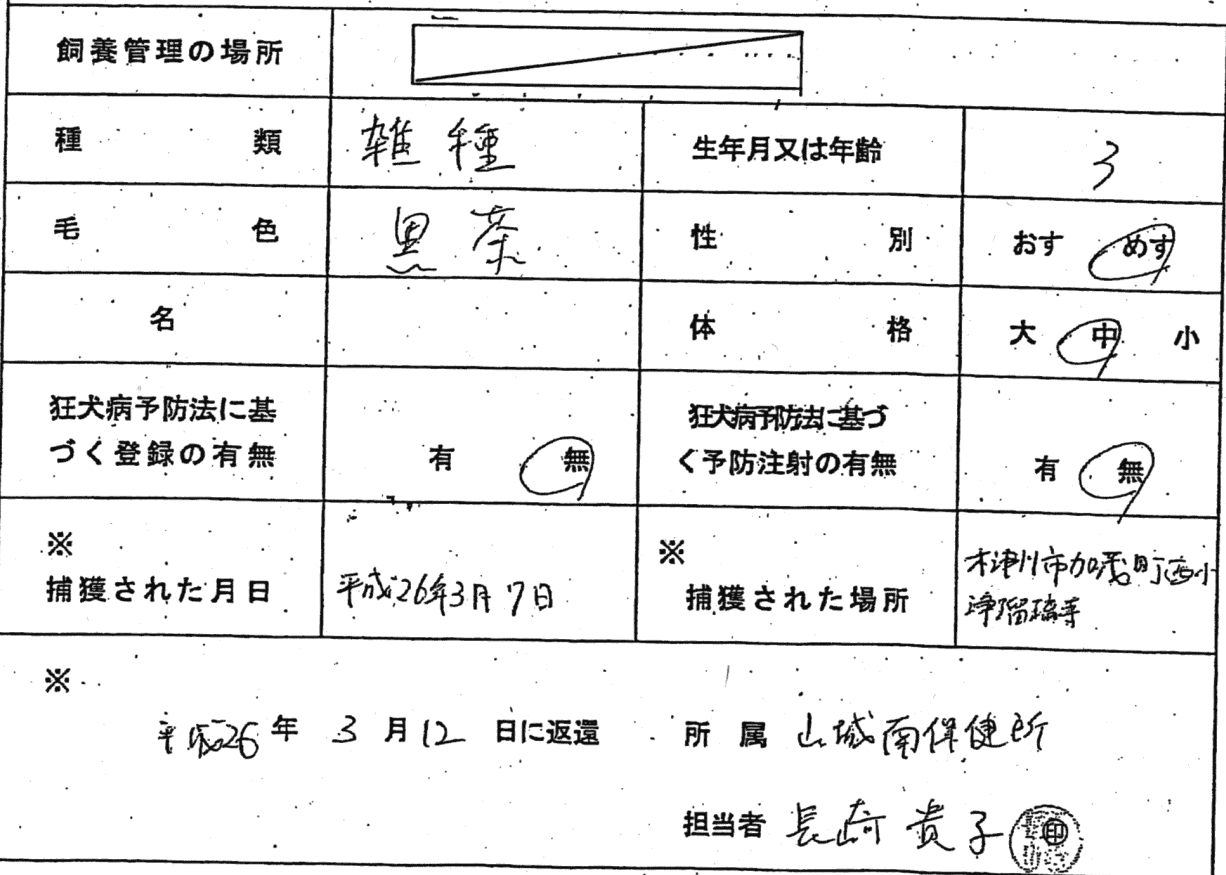 飼養管理の場所
種類 雑種 生年月又は年齢 3
毛色 黒茶 性別 おす めす
名 体格 大 中 小
狂犬病予防法に基
づく登録の有無 有 無
狂犬病予防法に基づ
く予防注射の有無 有 無
※
捕獲された月日 平成26年3月7日
※
捕獲された場所
木津川市加茂町西小
浄瑠璃寺
※
平成26年 3月12日に返還 所属 山城南保健所
担当者 長崎貴子 印